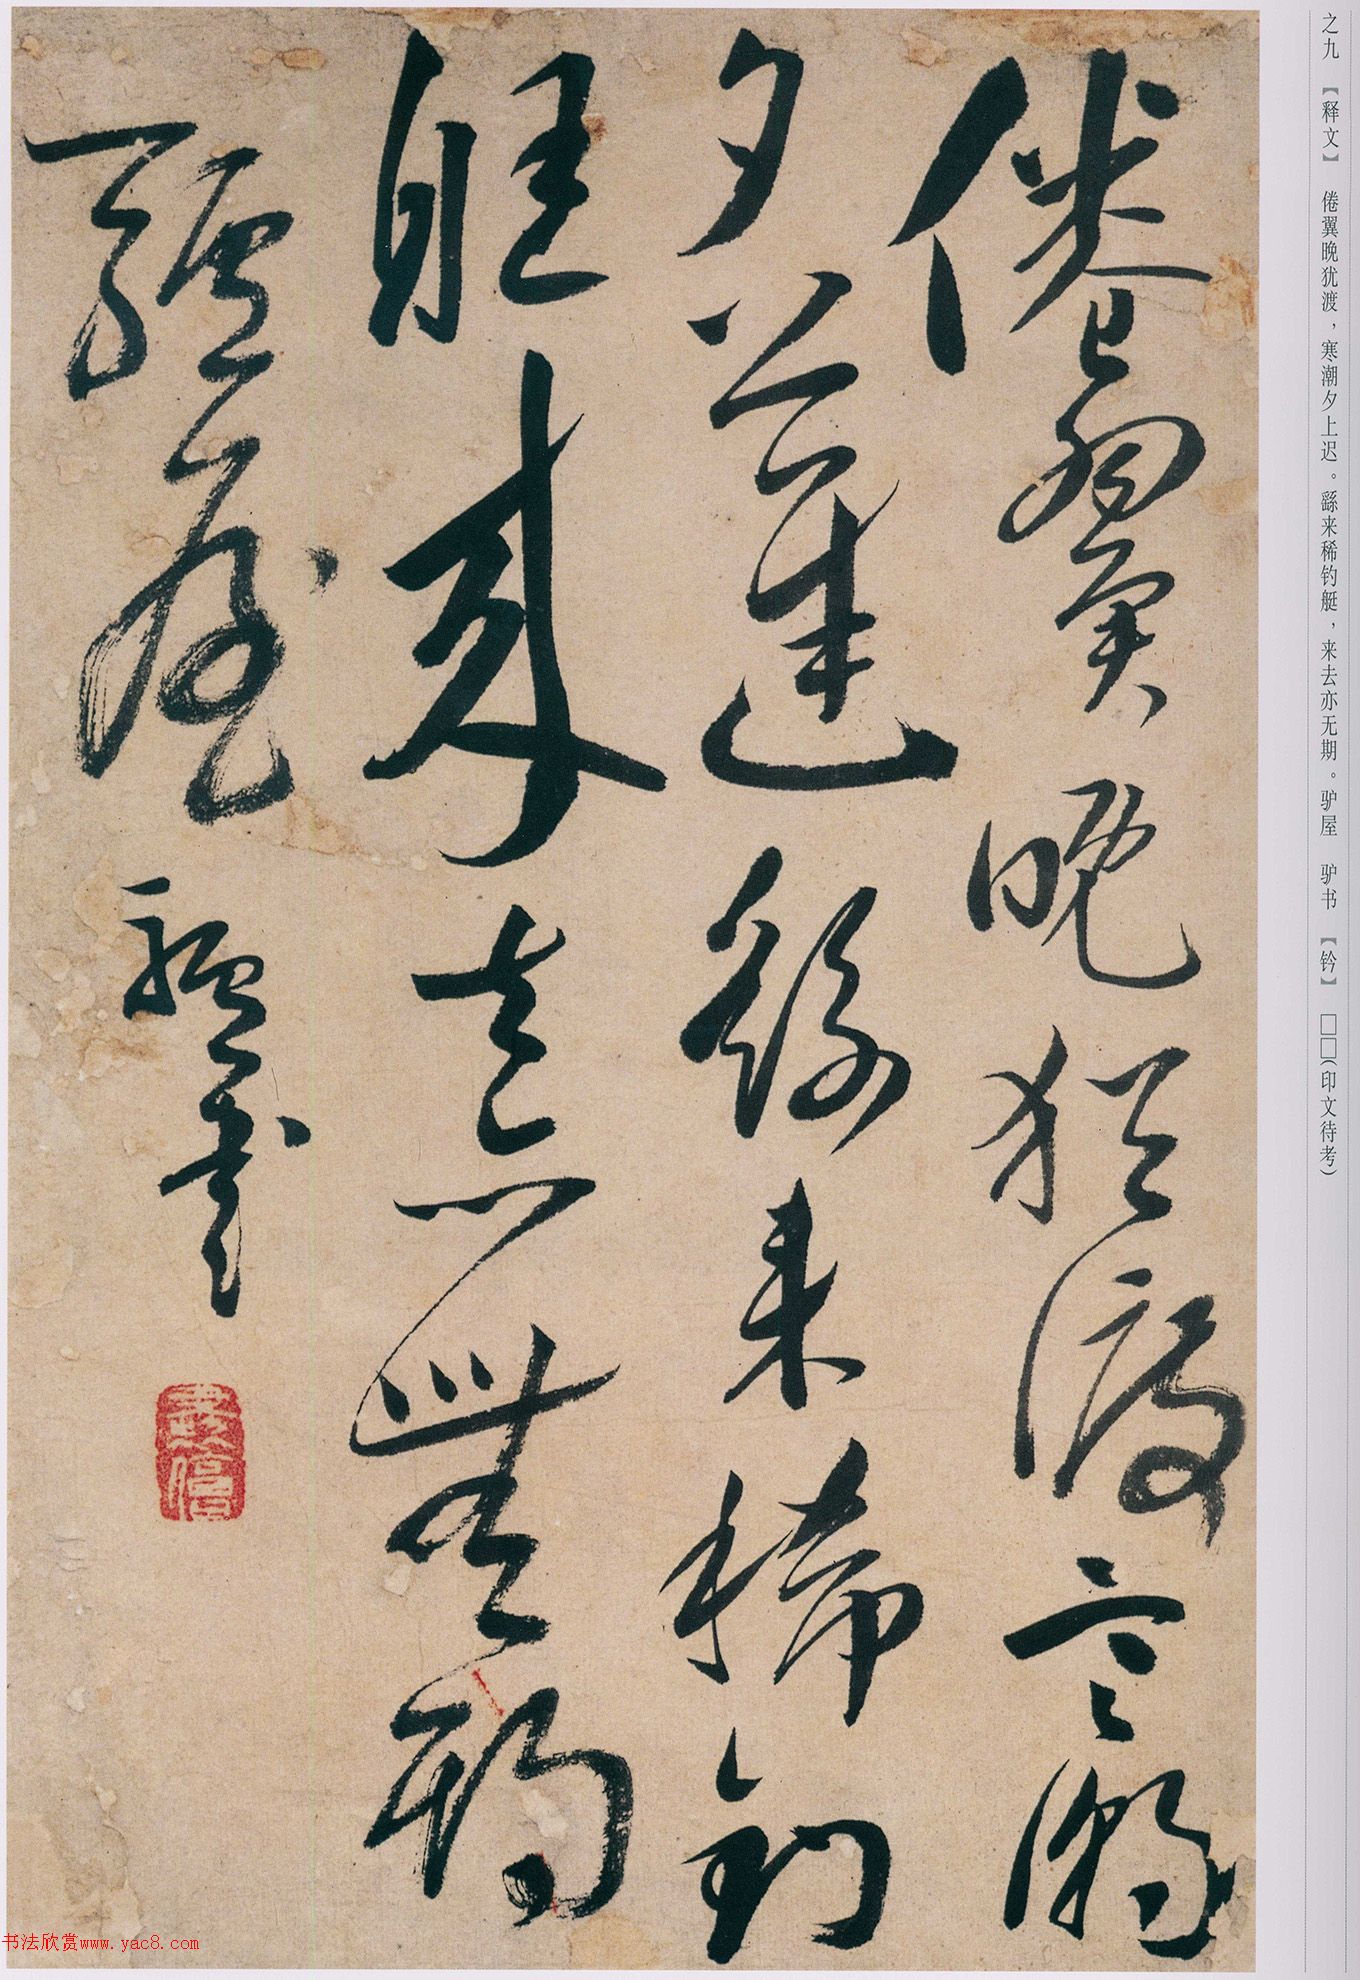 之九 【释文】 倦翼晚犹渡，寒潮夕上迟。繇来稀钓艇，来去亦无期。驴屋 驴书 【钤】 □□（印文待考）
倦翼晚猶渡寒潮
夕上遲繇来稀釣
艇來去亦無期
驢屋驢書
书法欣赏www.yac8.com